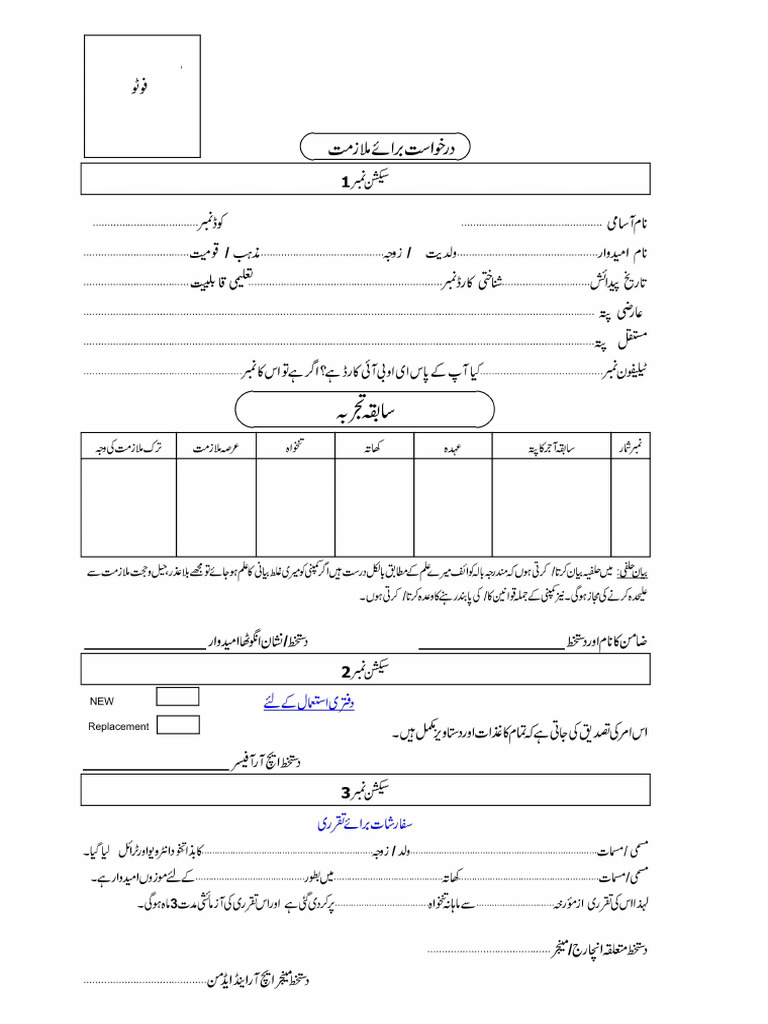 فوٹو
درخواست برائے ملازمت
سیکشن نمبر 1
نام آسامی ........................................ کوڈ نمبر ........................................
نام امیدوار ........................................ ولدیت / زوجہ ........................................ مذہب / قومیت ........................................
تاریخ پیدائش ........................................ شناختی کارڈ نمبر ........................................ تعلیمی قابلیت ........................................
عارضی پتہ ........................................
مستقل پتہ ........................................
ٹیلیفون نمبر ........................................ کیا آپ کے پاس ای او بی آئی کارڈ ہے؟ اگر ہے تو اس کا نمبر ........................................
سابقہ تجربہ
نمبر شمار سابقہ آجر کا پتہ عہدہ کھاتہ تنخواہ عرصہ ملازمت ترک ملازمت کی وجہ
بیان حلفی: میں حلفیہ بیان کرتا / کرتی ہوں کہ مندرجہ بالا کوائف میرے علم کے مطابق بالکل درست ہیں اگر کمپنی کو میری غلط بیانی کا علم ہو جائے تو مجھے بلا عذر، حیل و حجت ملازمت سے
علیحدہ کرنے کی مجاز ہو گی۔ نیز کمپنی کے جملہ قوانین کا / کی پابند رہنے کا وعدہ کرتا / کرتی ہوں۔
ضامن کا نام اور دستخط ____________________ دستخط / نشان انگوٹھا امیدوار ____________________
سیکشن نمبر 2
دفتری استعمال کے لئے
NEW
Replacement
اس امر کی تصدیق کی جاتی ہے کہ تمام کاغذات اور دستاویز مکمل ہیں۔
دستخط ایچ آر آفیسر ____________________
سیکشن نمبر 3
سفارشات برائے تقرری
مسمی / مسمات ........................................ ولد / زوجہ ........................................ کا بذات خود انٹرویو اور ٹرائل لیا گیا۔
مسمی / مسمات ........................................ کھاتہ ........................................ میں بطور ........................................ کے لئے موزوں امیدوار ہے۔
لہذا اس کی تقرری از مؤرخہ ........................................ سے ماہانہ تنخواہ ........................................ پر کر دی گئی ہے اور اس تقرری کی آزمائشی مدت 3 ماہ ہو گی۔
دستخط متعلقہ انچارج / مینجر ........................................
دستخط مینجر ایچ آر اینڈ ایڈمن ........................................